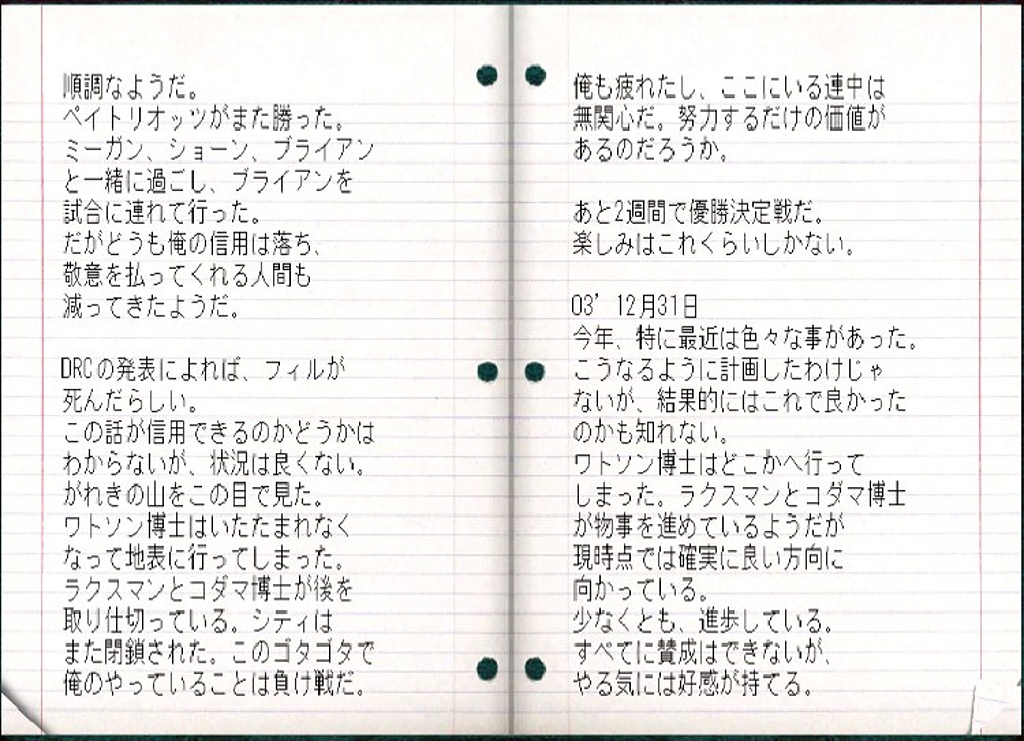 順調なようだ。
ペイトリオッツがまた勝った。
ミーガン、ショーン、ブライアン
と一緒に過ごし、ブライアンを
試合に連れて行った。
だがどうも俺の信用は落ち、
敬意を払ってくれる人間も
減ってきたようだ。
DRCの発表によれば、フィルが
死んだらしい。
この話が信用できるのかどうかは
わからないが、状況は良くない。
がれきの山をこの目で見た。
ワトソン博士はいたたまれなく
なって地表に行ってしまった。
ラクスマンとコダマ博士が後を
取り仕切っている。シティは
また閉鎖された。このゴタゴタで
俺のやっていることは負け戦だ。
俺も疲れたし、ここにいる連中は
無関心だ。努力するだけの価値が
あるのだろうか。
あと2週間で優勝決定戦だ。
楽しみはこれくらいしかない。
03' 12月31日
今年、特に最近は色々な事があった。
こうなるように計画したわけじゃ
ないが、結果的にはこれで良かった
のかも知れない。
ワトソン博士はどこかへ行って
しまった。ラクスマンとコダマ博士
が物事を進めているようだが
現時点では確実に良い方向に
向かっている。
少なくとも、進歩している。
すべてに賛成はできないが、
やる気には好感が持てる。